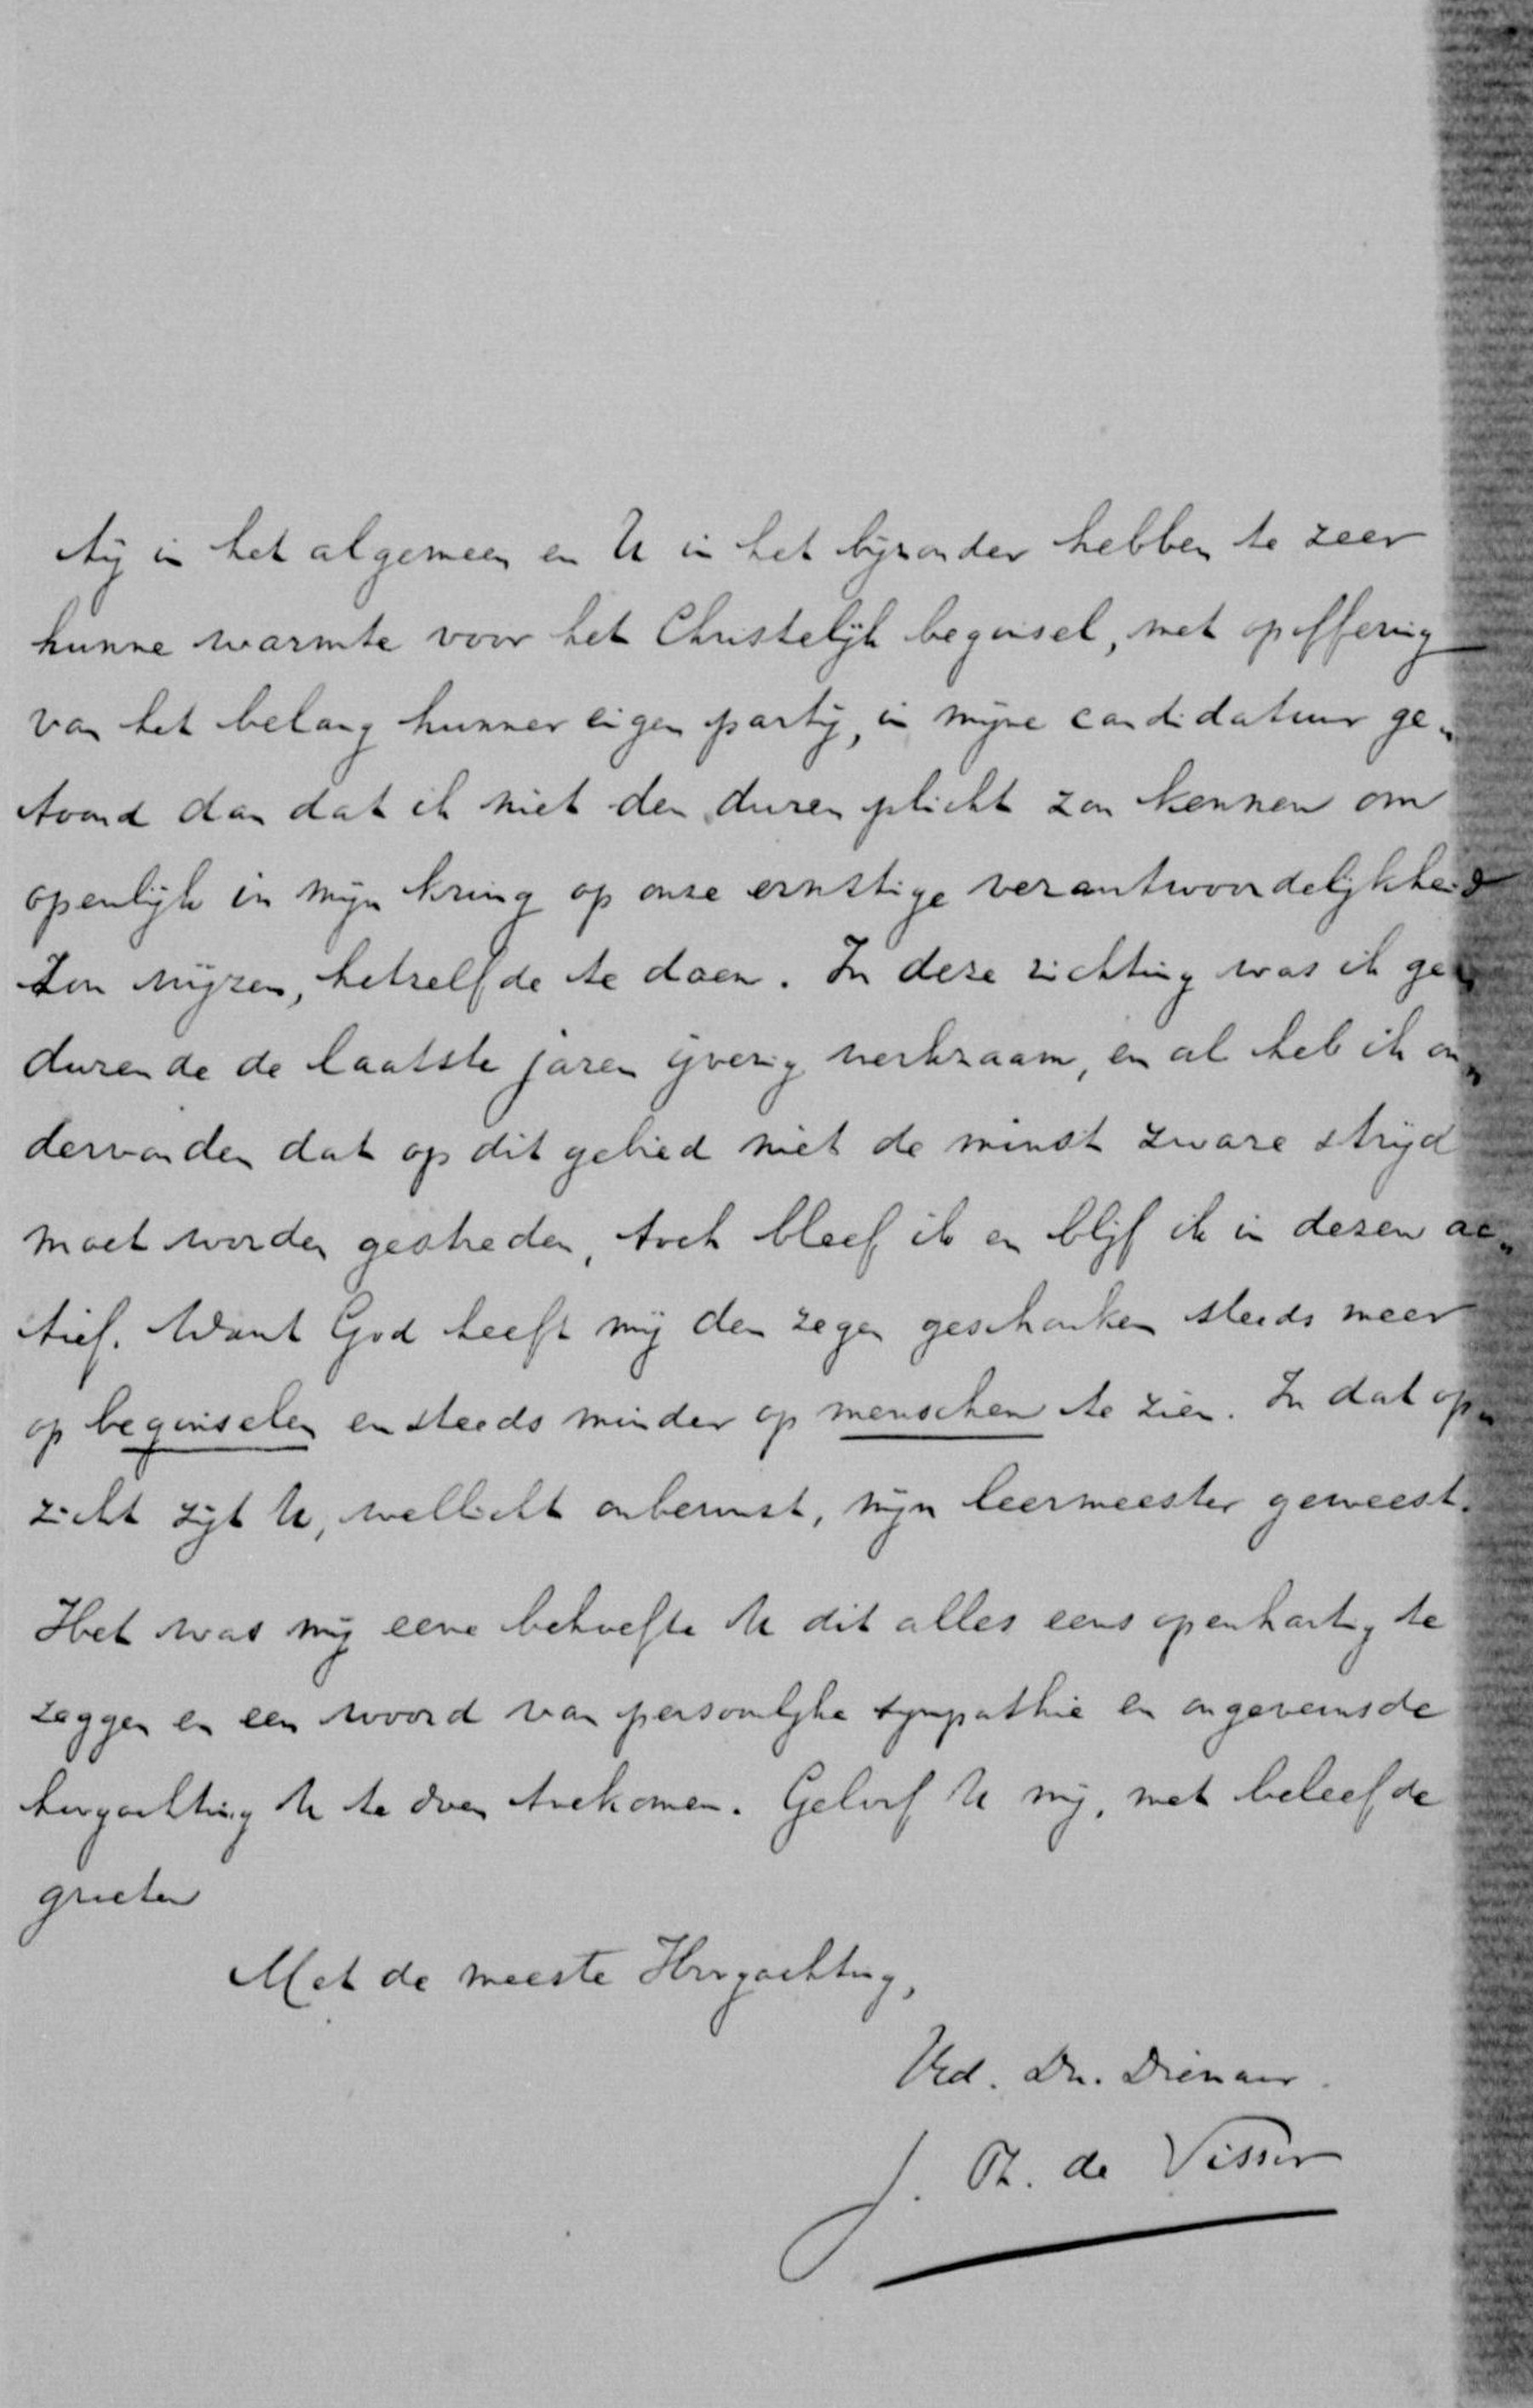 tij in het algemeen en U in het bijzonder hebben te zeer
hunne warmte voor het Christelijk beginsel, met opoffering
van het belang hunner eigen partij, in mijne candidatuur ge„
toond dan dat ik niet den duren plicht zou kennen om
openlijk in mijn kring op onze ernstige verantwoordelijkheid
zou wijzen, hetzelfde te doen. In deze richting was ik ge„
durende de laatste jaren ijverig werkzaam, en al heb ik on„
dervonden dat op dit gebied niet de minst zware strijd
moet worden gestreden, toch bleef ik en blijf ik in dezen ac„
tief. Want God heeft mij den zegen geschonken steeds meer
op beginselen en steeds minder op menschen te zien. In dat op„
zicht zijt U, wellicht onbewust, mijn leermeester geweest.
Het was mij eene behoefte U dit alles eens openhartig te
zeggen en een woord van persoonlijke sympathie en ongeveinsde
hoogachting U te doen toekomen. Geloof U mij, met beleefde
groeten
Met de meeste Hoogachting,
Uw Ed. Dw. Dienaar.
J. Th. de Visser